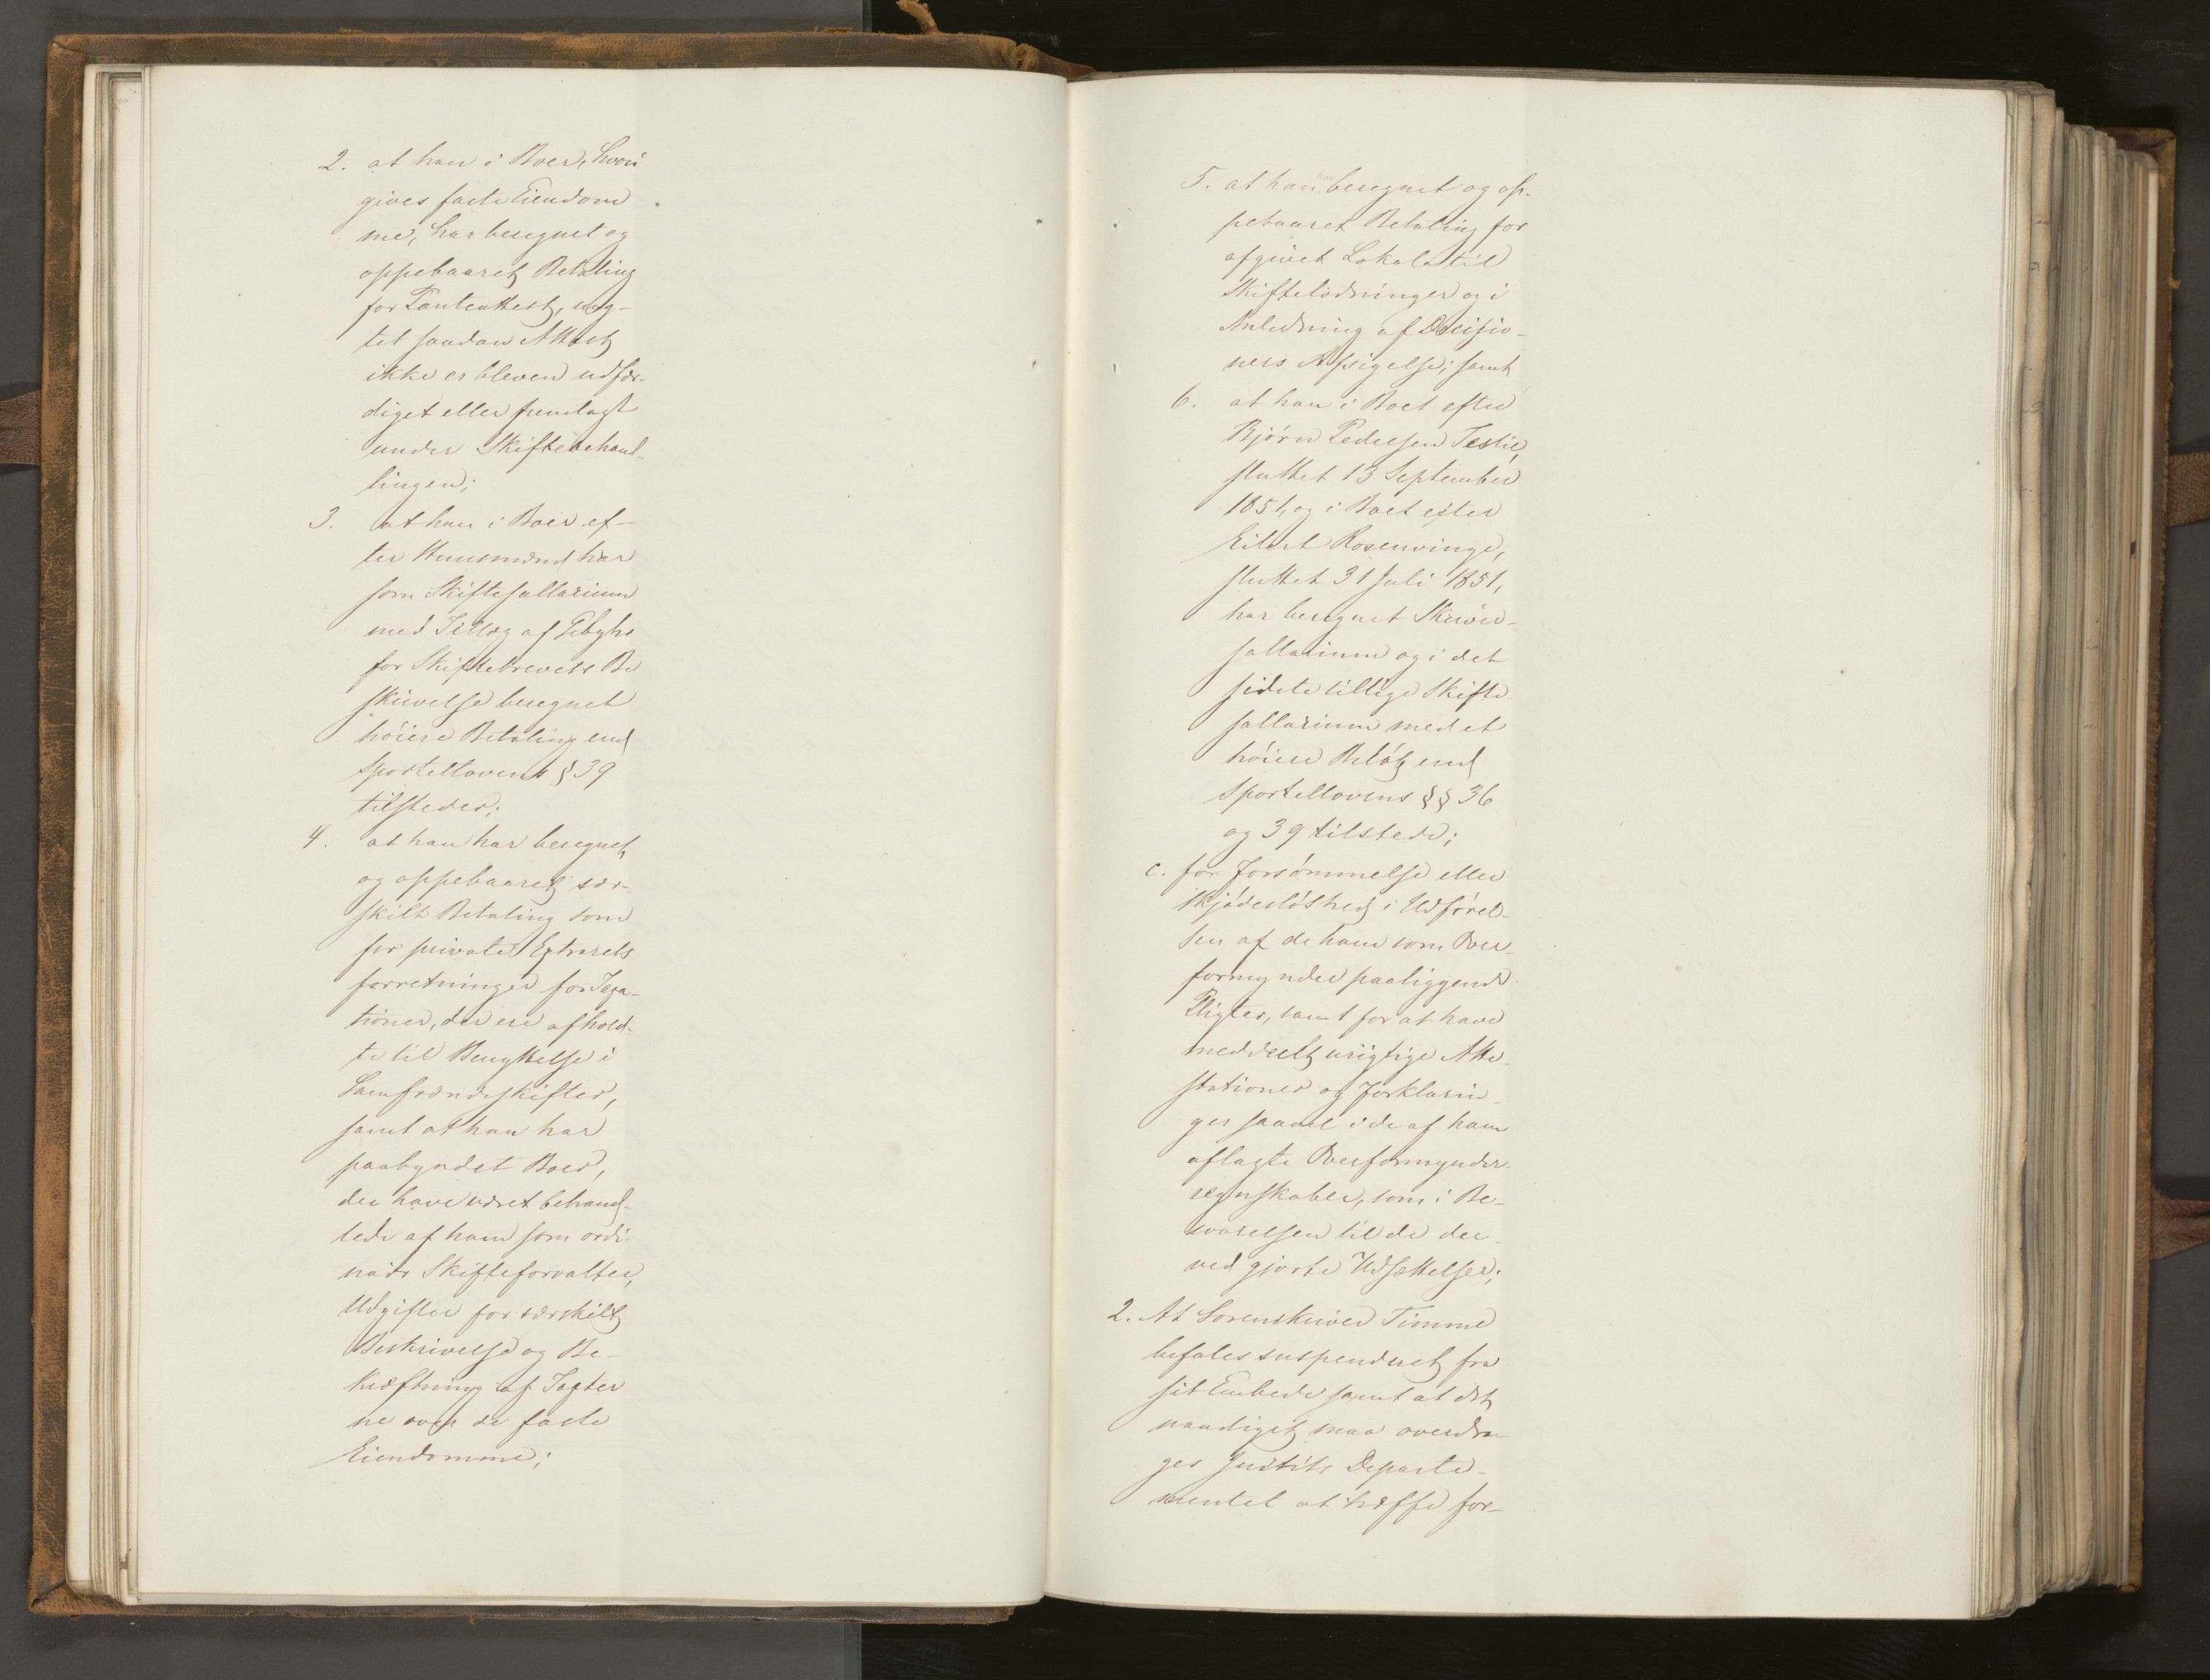 2. at han i Boer, hvori
gives faste Eiendom
me, har beregnet og
oppebaaret Betaling
for Panteattest, uag-
tet saadan Attest
ikke er bleven udfær-
diget eller fremlagt
under Skiftebehand-
lingen;
3. at han i Boer ef-
ter Huusmænd har
som Skiftesallarium
med Tillæg af Gebyhr
for Skiftebrevets Be
skrivelse beregnet
höiere Betaling end
Sportellovens § 39
tilsteder;
4. at han har beregnet
og oppebaaret sær-
skilt Betaling som
for private Extrarets
forretninger for Taxa-
tioner, der ere afhold-
te til Benyttelse i
Samfrændeskifter,
samt at han har
paabyrdet Boer,
der have været behand-
lede af ham som ordi-
nair Skifteforvalter,
Udgifter for særskilt
Beskrivelse og Be-
kræftning af Taxter
ne over de faste
Eiendomme;
5. at han har beregnet og op-
pebaaret Betaling for
afgivet Lokale til
Skiftelodninger og i
Anledning af Decisio-
ners Afsigelse; samt
6. at han i Boet efter
Bjørn Pedersen Teslie,
sluttet 13 September
1851, og i Boet efter
Eilert Rosenvinge,
sluttet 31 Juli 1851,
har beregnet Skriver-
sallarium og i det
sidste tillige Skifte
sallarium med et
höiere Beløb end
Sportellovens §§ 36
og 39 tilstede;
c. for Forsömmelse eller
Skjødesløshed i Udförel-
sen af de ham som Over
formynder paaliggende
Pligter, samt for at have
meddeelt urigtige Atte
stationer og Forklarin-
ger saavel i de af ham
aflagte Overformynder-
regnskaber, som i Be-
svarelsen til de der-
ved gjorte Udsættelser;
2. At Sorenskriver Timme
befales suspenderet fra
sit Embede samt at det
naadigst maa overdra-
ges Justits Departe-
mentet at træffe for-